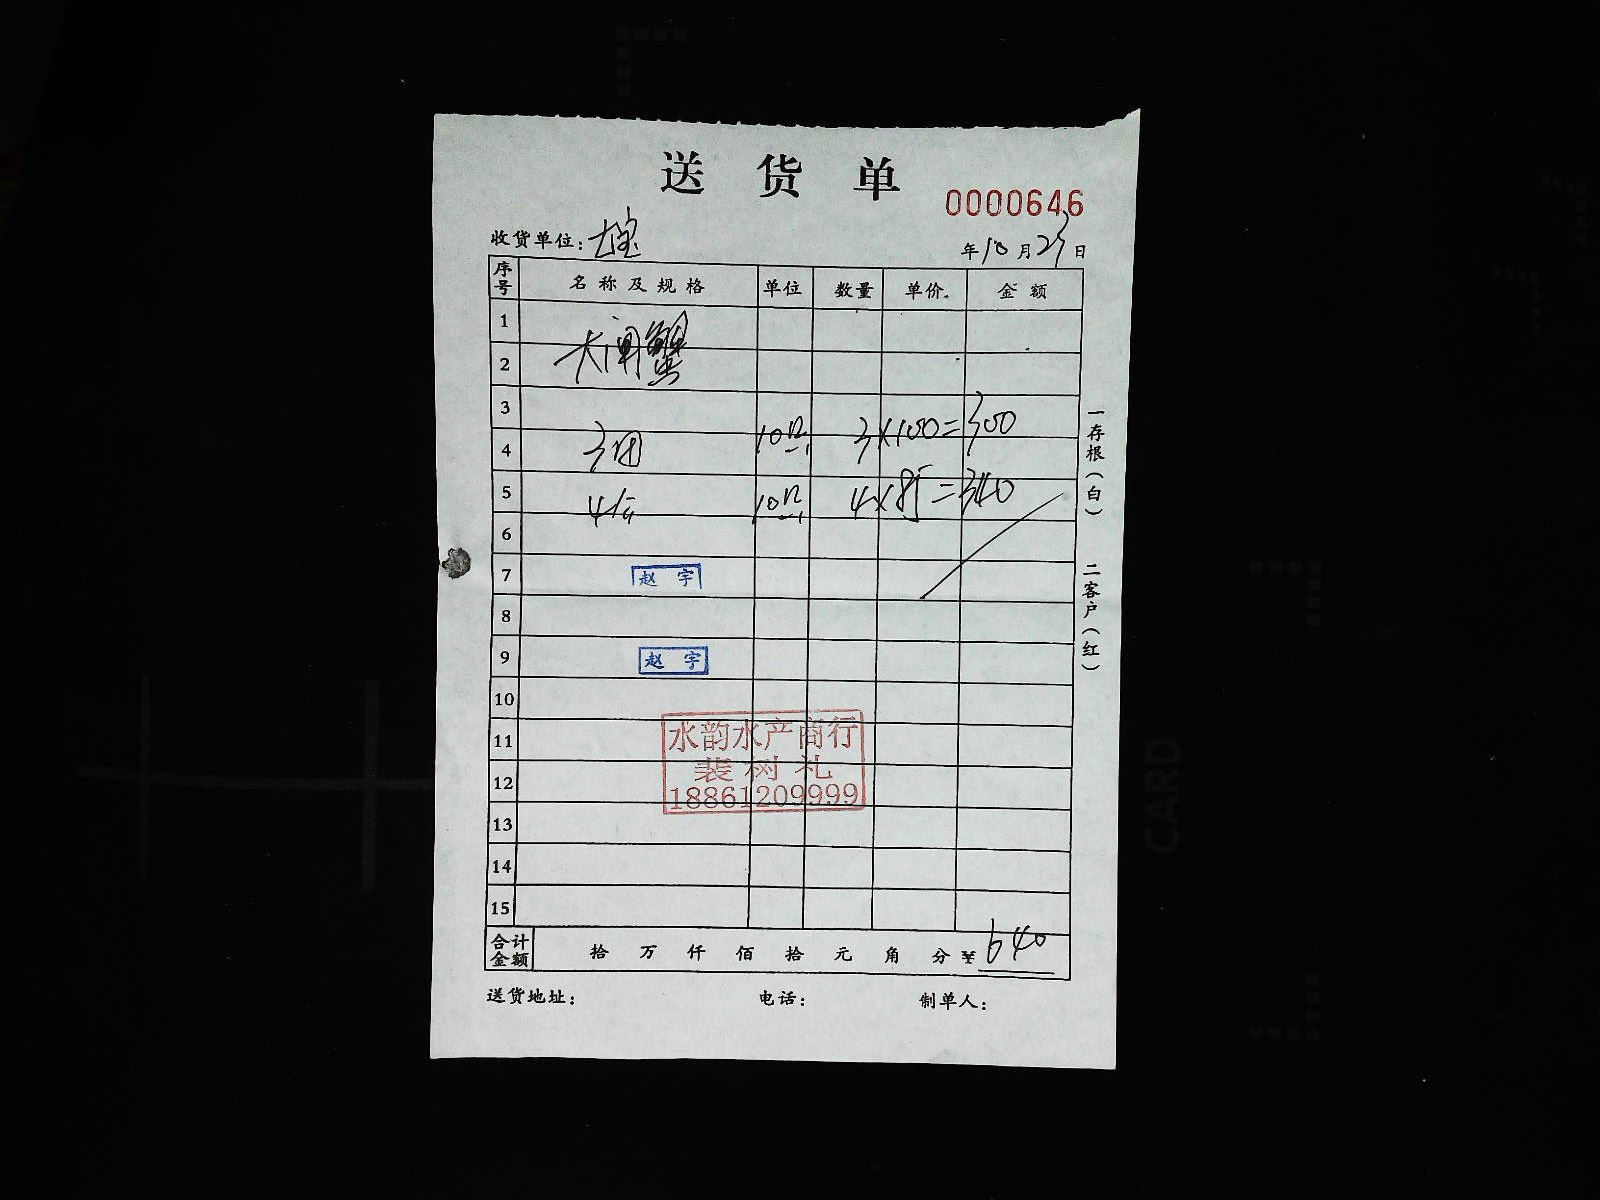 送货单
0000646
收货单位:
年10月29日
序号 名称及规格 单位 数量 单价 金额
1
2 大闸蟹
3
4 3团 10只 3×100=300
5 4信 10只 4×85=340
6
7 赵宇
8
9 赵宇
10
11 水韵水产商行
12 裴树礼
18861209999
13
14
15
合计金额 拾 万 仟 佰 拾 元 角 分 ¥640
送货地址: 电话: 制单人:
一存根(白)
二客户(红)
CARD